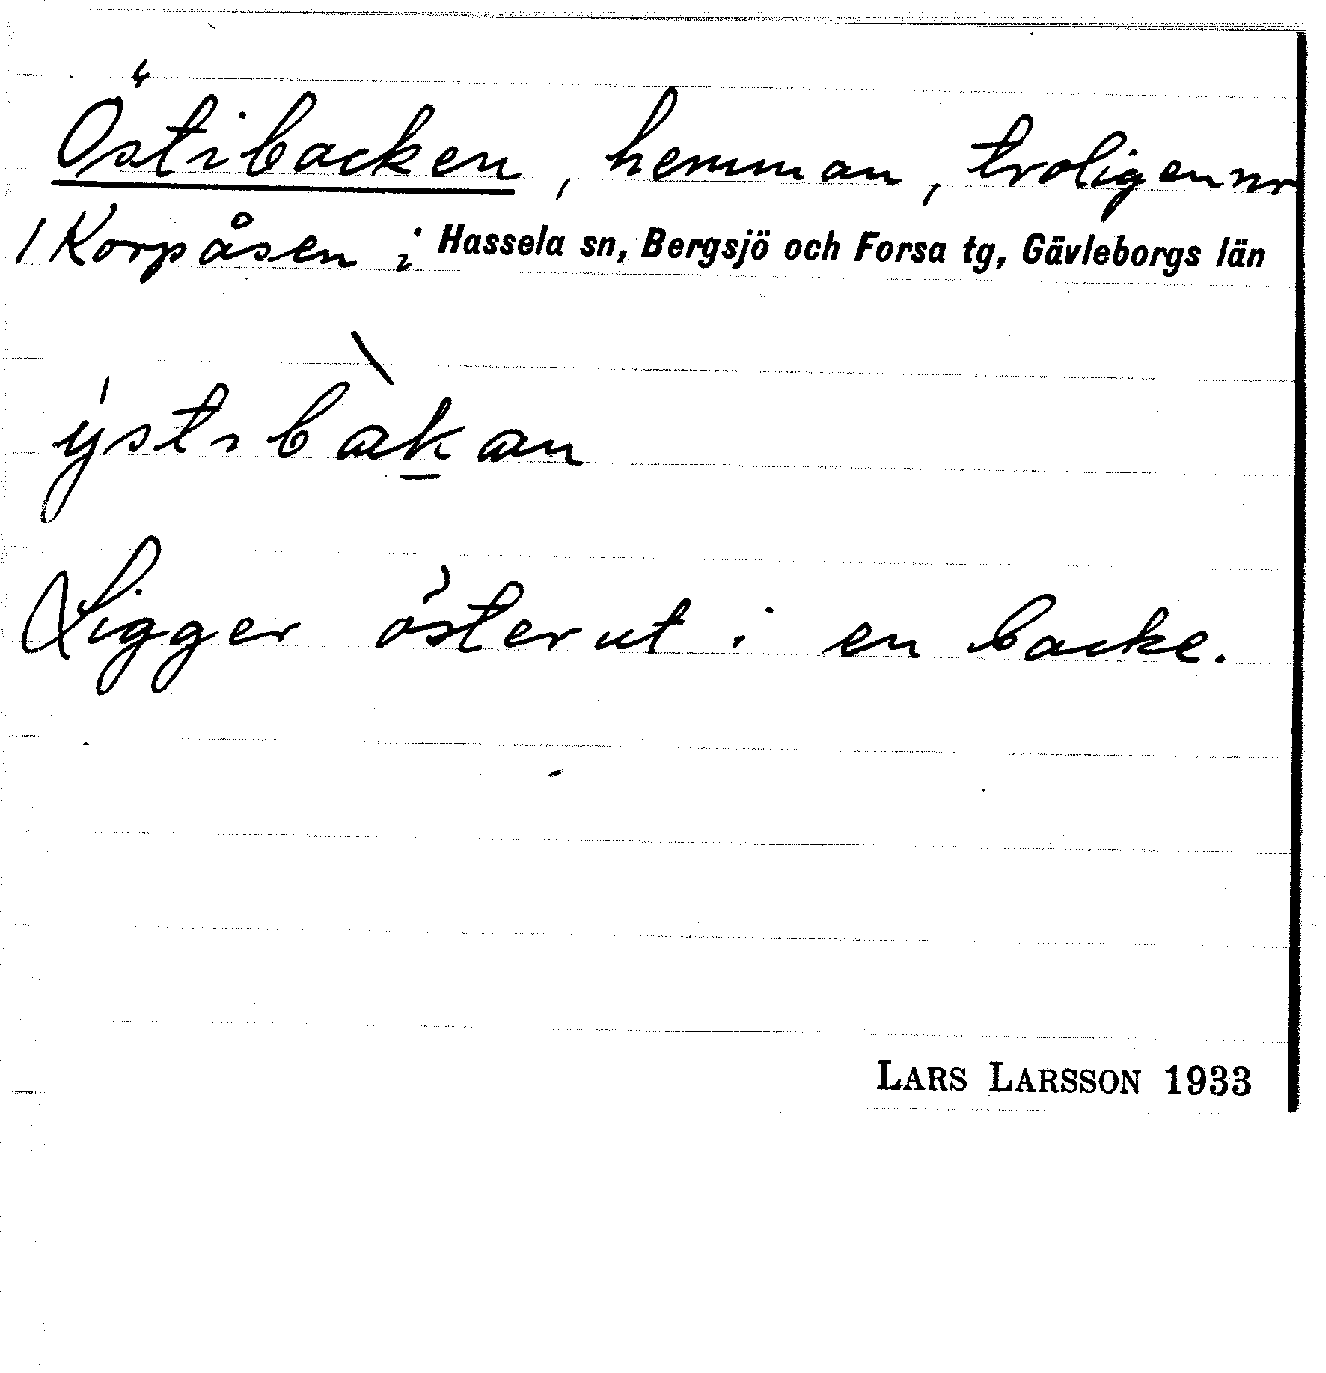 Östibacken, hemman, troligen nr
1 Korpåsen i Hassela sn, Bergsjö och Forsa tg, Gävleborgs län
ýstıbàkan
Ligger österut i en backe.
LARS LARSSON 1933